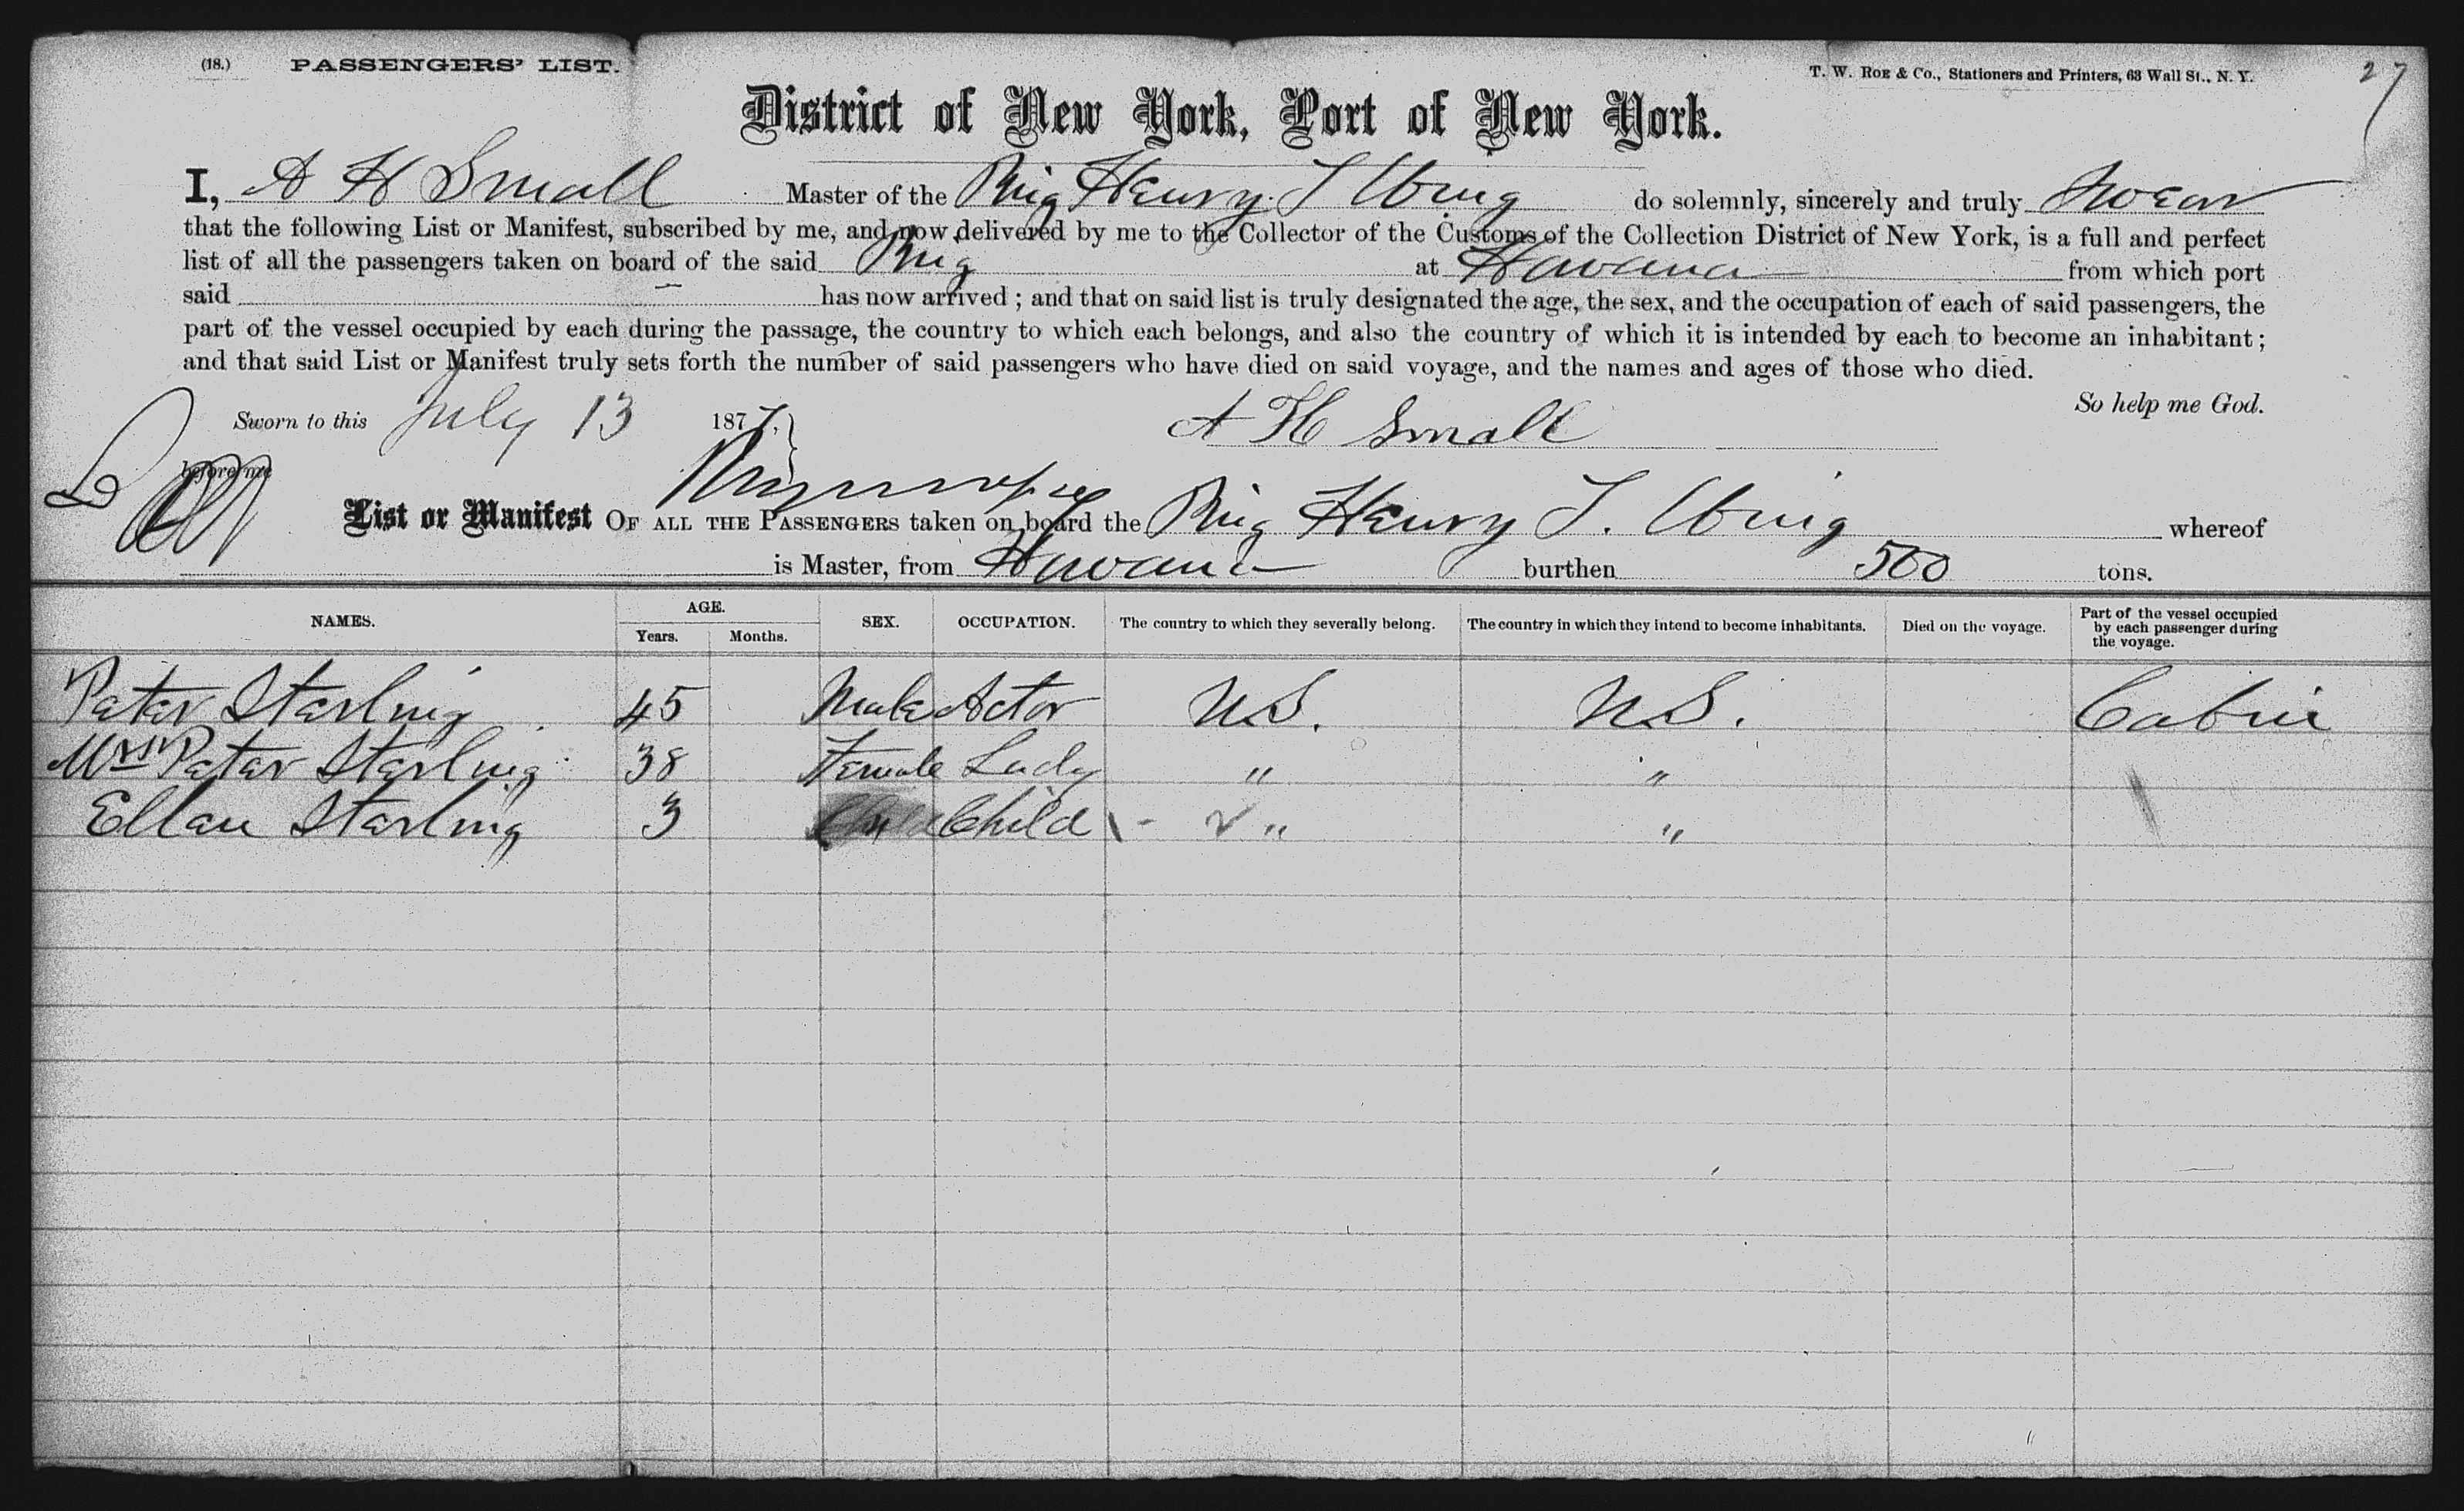 (18.) PASSENGERS' LIST. T. W. ROE & Co., Stationers and Printers, 63 Wall St., N. Y. 27
District of New York, Port of New York.
I, A H Small Master of the Brig Henry T Wing do solemnly, sincerely and truly Swear
that the following List or Manifest, subscribed by me, and now delivered by me to the Collector of the Customs of the Collection District of New York, is a full and perfect
list of all the passengers taken on board of the said Brig at Havana from which port
said has now arrived ; and that on said list is truly designated the age, the sex, and the occupation of each of said passengers, the
part of the vessel occupied by each during the passage, the country to which each belongs, and also the country of which it is intended by each to become an inhabitant ;
and that said List or Manifest truly sets forth the number of said passengers who have died on said voyage, and the names and ages of those who died.
So help me God.
Sworn to this July 13 1877. A H Small
before me
List or Manifest OF ALL THE PASSENGERS taken on board the Brig Henry T. Wing whereof
is Master, from Havana burthen 500 tons.
NAMES. AGE. Years. Months. SEX. OCCUPATION. The country to which they severally belong. The country in which they intend to become inhabitants. Died on the voyage. Part of the vessel occupied by each passenger during the voyage.
Peter Starling 45 Male Actor U.S. U.S. Cabin
Mrs Peter Starling 38 Female Lady " "
Ellen Starling 3 Child Child " "